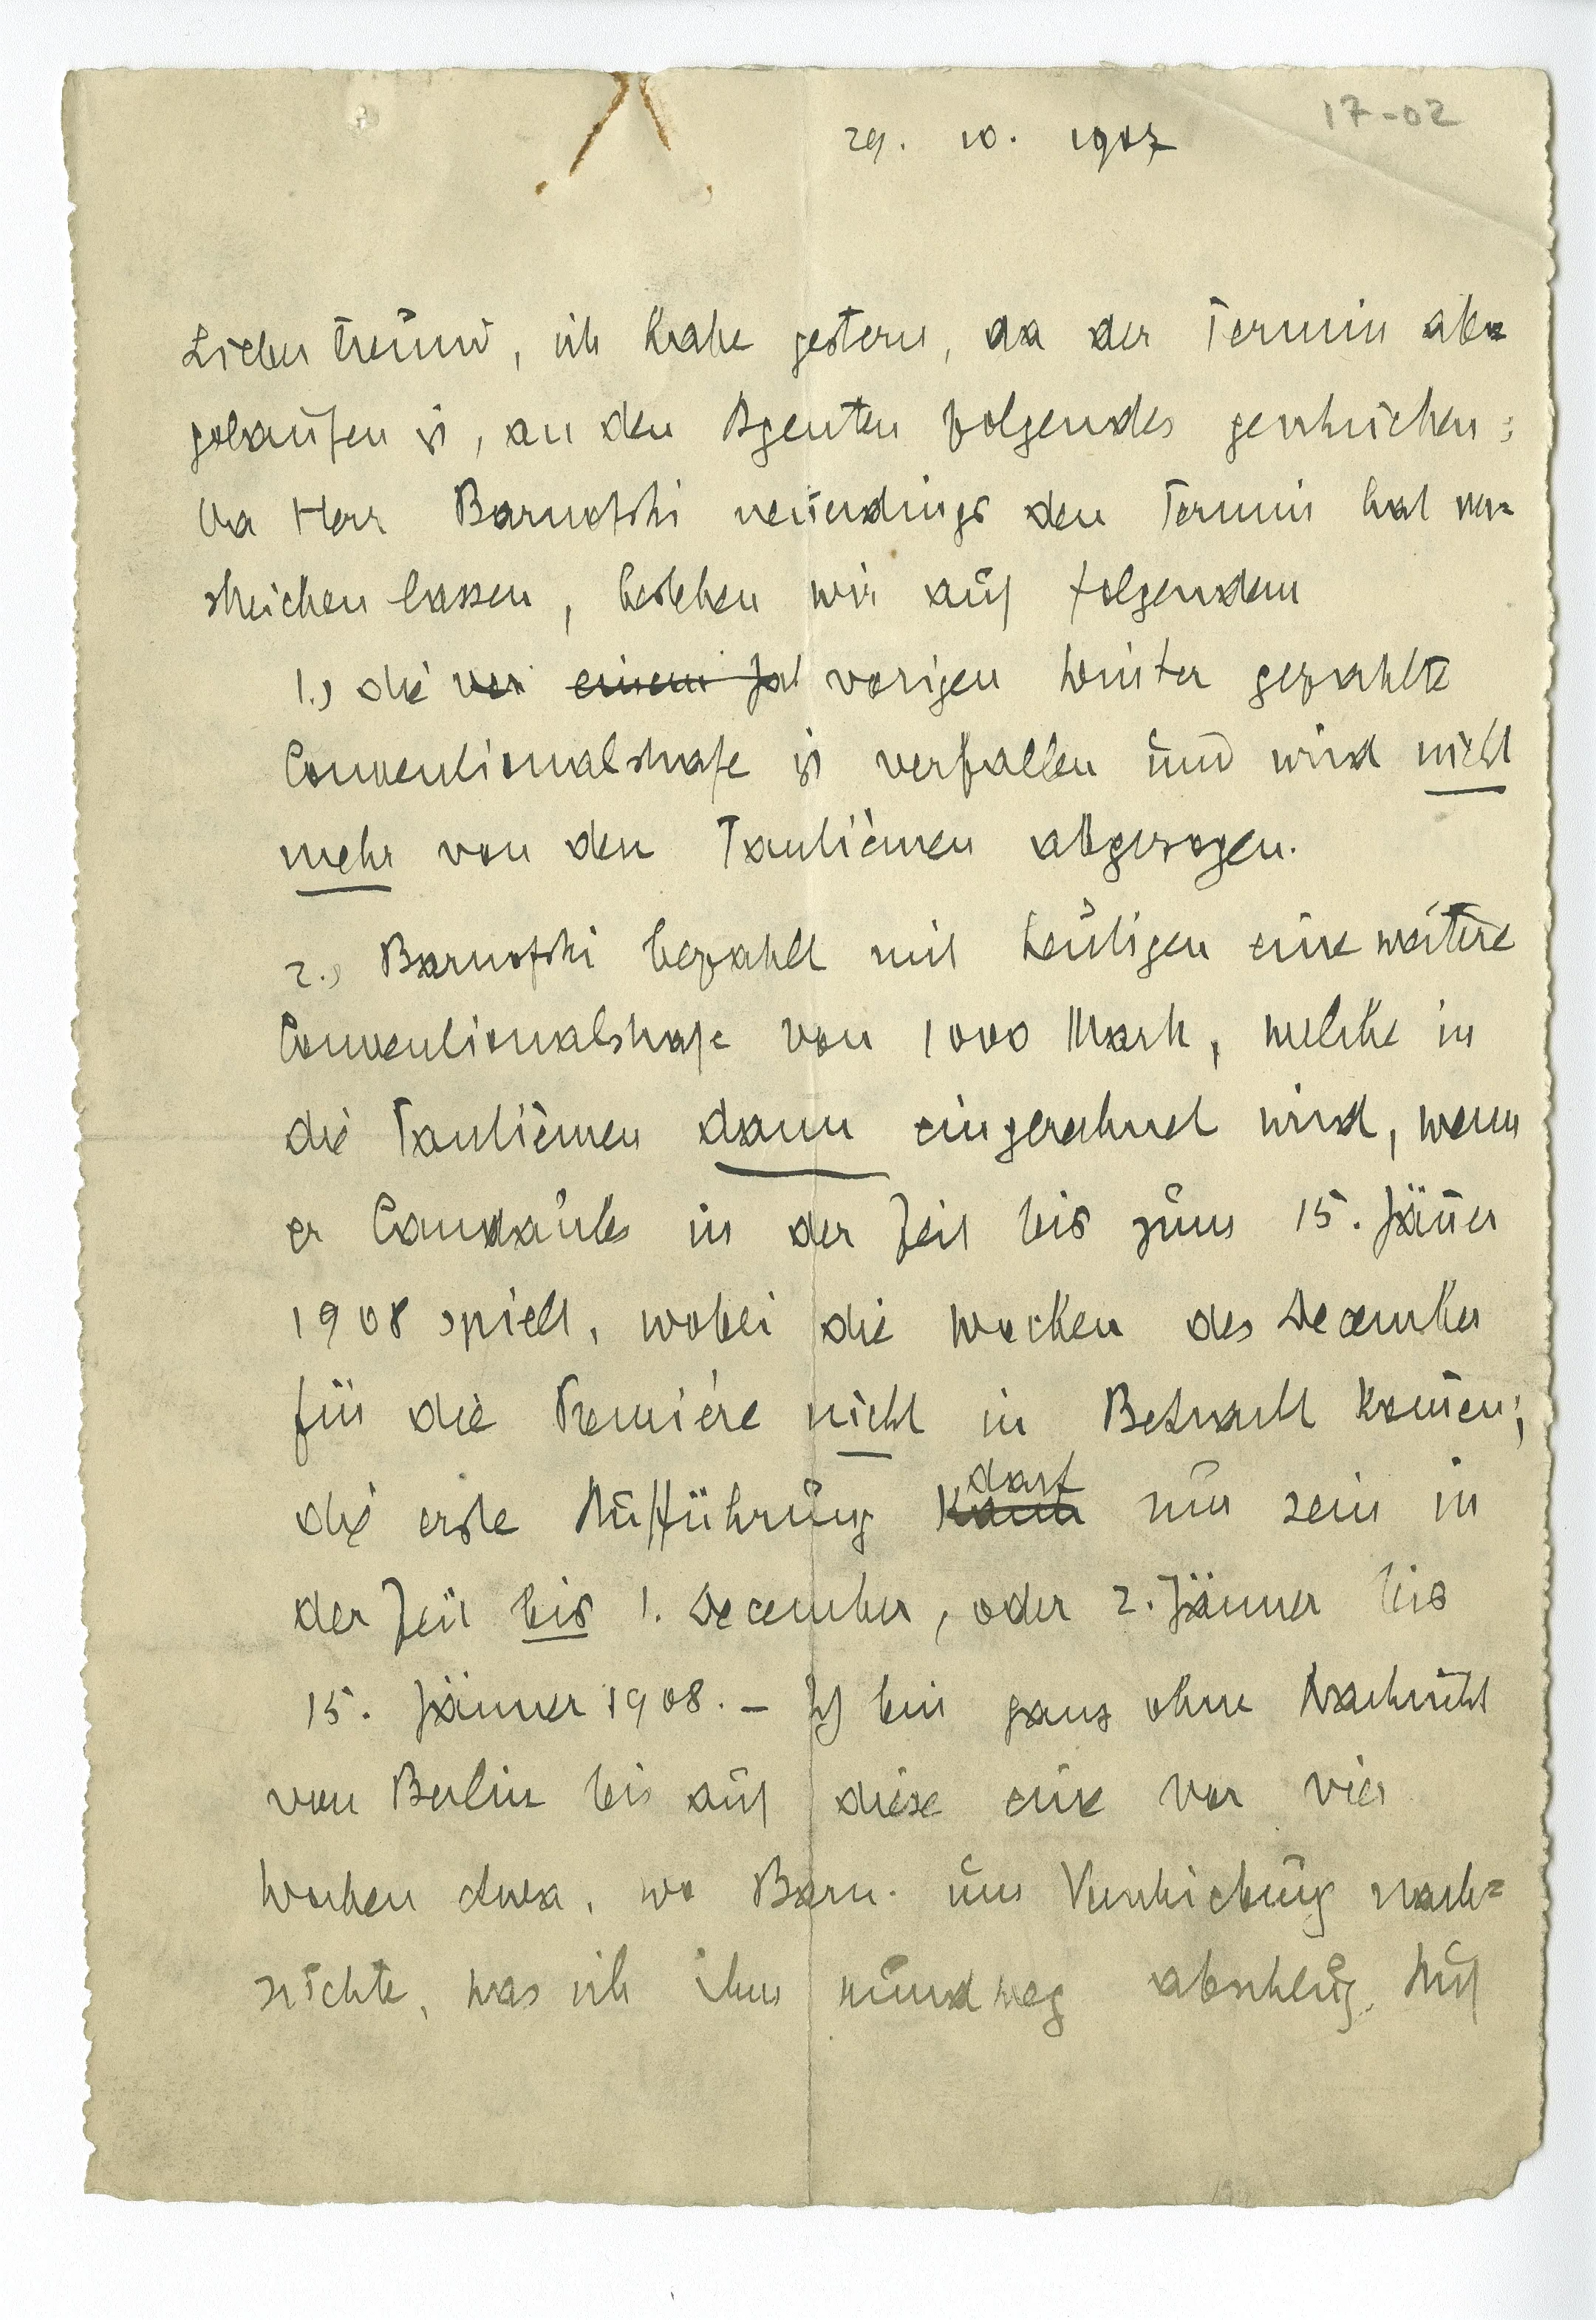 17-02
29. 10. 1907
Lieber Freund, ich habe gestern, da der Termin ab=
gelaufen ist, an den Agenten folgendes geschrieben:
Da Herr Barnofski neuerdings den Termin hat ver=
streichen lassen, bestehen wir auf folgendem
1.) die vor einem Jah vorigen Winter gezahlte
Conventionalstrafe ist verfallen und wird nicht
mehr von den Tantièmen abgezogen.
2.) Barnofski bezahlt mit heutigen eine weitere
Conventionalstrafe von 1000 Mark, welche in
die Tantièmen dann eingerechnet wird, wenn
er Candaules in der Zeit bis zum 15. Jäner
1908 spielt, wobei die Wochen des December
für die Première nicht in Betracht komen;
die erste Aufführung kann darf nur sein in
der Zeit bis 1. December, oder 2. Jänner bis
15. Jänner 1908. – Ich bin ganz ohne Nachricht
von Berlin bis auf diese eine vor vier
Wochen etwa, wo Barn. um Verschiebung nach=
suchte, was ich ihm rundweg abschlug. Auf